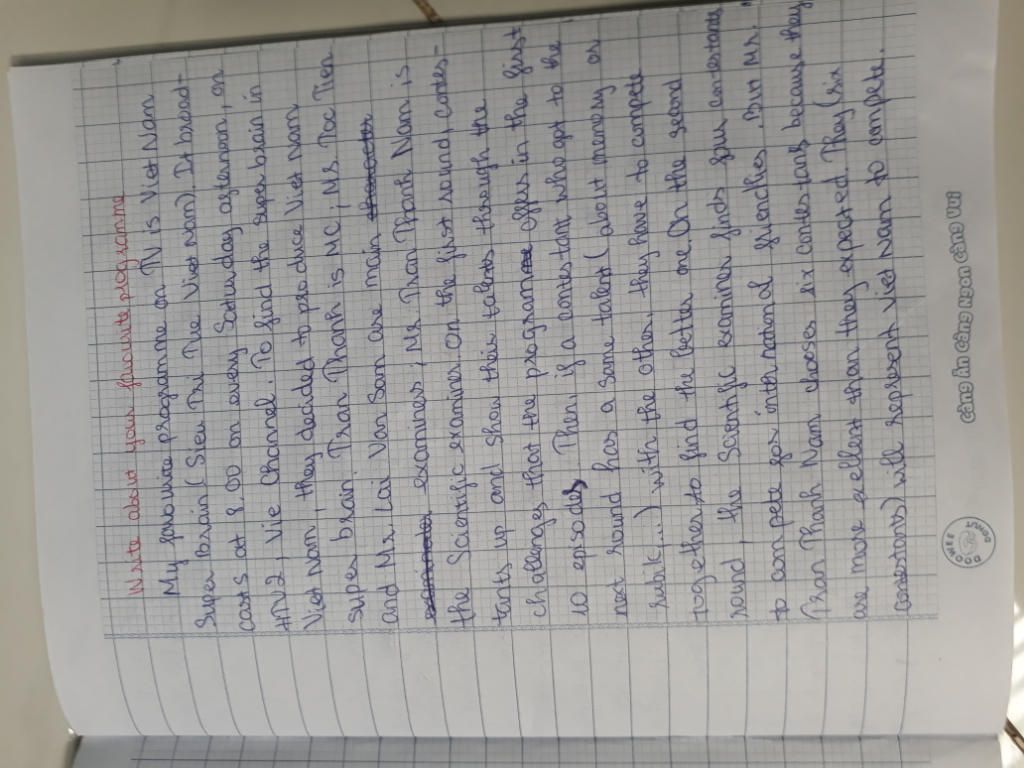 Write about your favourite programme
My favourite programme on TV is Viet Nam
Super brain (Sieu Tri Tue Viet Nam). It broad-
casts at 8.00 on every Saturday afternoon, on
HTV2, Vie Channel. To find the super brain in
Viet Nam, they decided to produce Viet Nam
super brain. Tran Thanh is MC, Ms. Toc Tien
and Mr. Lai Van Sam are main
examiners, Mr. Tran Thanh Nam is
the Scientific examiner. On the first round, contes-
tants up and show their talents though the
challenges that the programe offers in the first
10 episodes. Then, if a contestant who got to the
next round has a same talent (about memory or
rubik,...) with the other, they have to compete
together to find the better one. On the second
round, the Scientific examiner finds four contestants
to compete for international friendlies. But Mr.
Tran Thanh Nam chooses six contestants because they
are more excellent than they expected. They (six
contestants) will represent Viet Nam to compete.
Càng học càng ngon càng vui